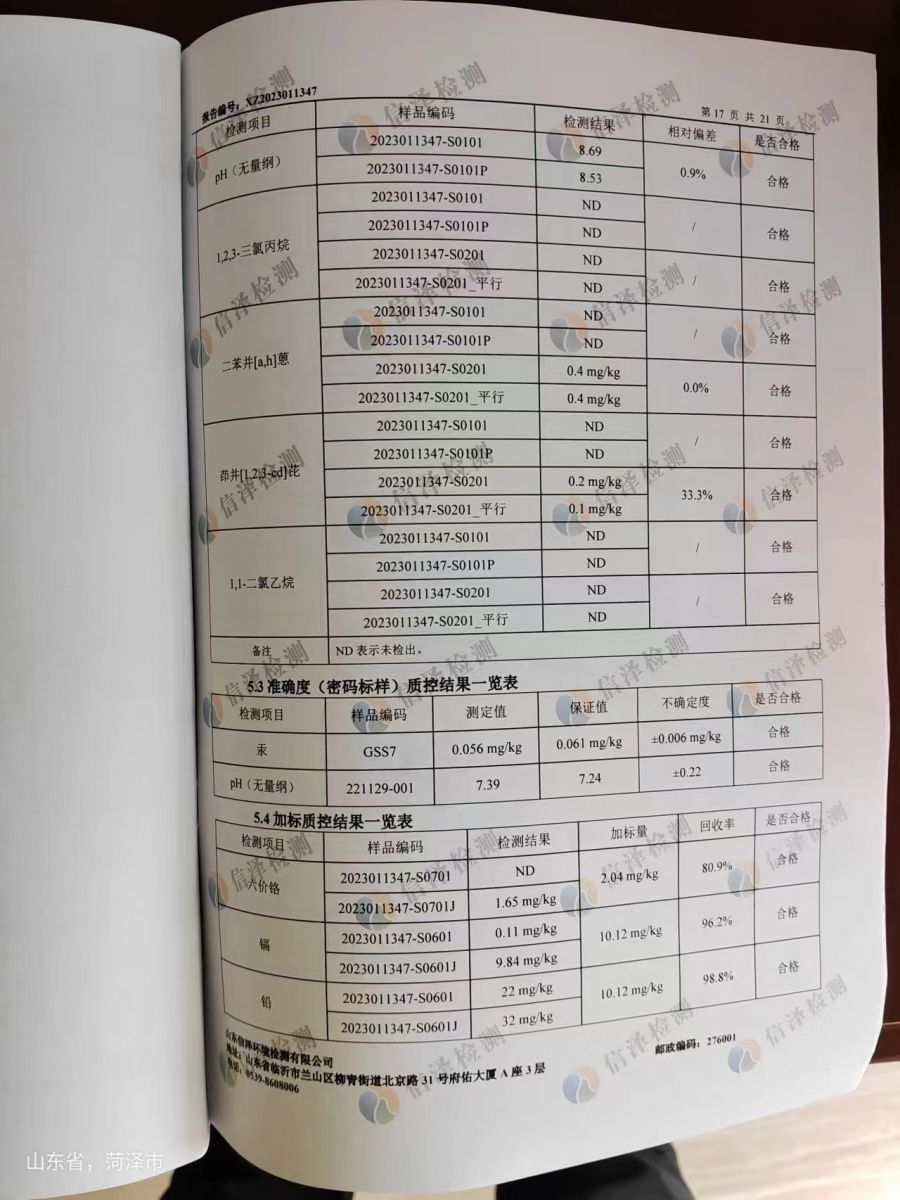 报告编号：XZ2023011347
第 17 页 共 21 页
检测项目 样品编码 检测结果 相对偏差 是否合格
pH（无量纲） 2023011347-S0101 8.69 0.9% 合格
2023011347-S0101P 8.53
1,2,3-三氯丙烷 2023011347-S0101 ND / 合格
2023011347-S0101P ND
2023011347-S0201 ND / 合格
2023011347-S0201_平行 ND
二苯并[a,h]蒽 2023011347-S0101 ND / 合格
2023011347-S0101P ND
2023011347-S0201 0.4 mg/kg 0.0% 合格
2023011347-S0201_平行 0.4 mg/kg
茚并[1,2,3-cd]芘 2023011347-S0101 ND / 合格
2023011347-S0101P ND
2023011347-S0201 0.2 mg/kg 33.3% 合格
2023011347-S0201_平行 0.1 mg/kg
1,1-二氯乙烷 2023011347-S0101 ND / 合格
2023011347-S0101P ND
2023011347-S0201 ND / 合格
2023011347-S0201_平行 ND
备注 ND 表示未检出。
5.3 准确度（密码标样）质控结果一览表
检测项目 样品编码 测定值 保证值 不确定度 是否合格
汞 GSS7 0.056 mg/kg 0.061 mg/kg ±0.006 mg/kg 合格
pH（无量纲） 221129-001 7.39 7.24 ±0.22 合格
5.4 加标质控结果一览表
检测项目 样品编码 检测结果 加标量 回收率 是否合格
六价铬 2023011347-S0701 ND 2.04 mg/kg 80.9% 合格
2023011347-S0701J 1.65 mg/kg
镉 2023011347-S0601 0.11 mg/kg 10.12 mg/kg 96.2% 合格
2023011347-S0601J 9.84 mg/kg
铅 2023011347-S0601 22 mg/kg 10.12 mg/kg 98.8% 合格
2023011347-S0601J 32 mg/kg
山东信泽环境检测有限公司
地址：山东省临沂市兰山区柳青街道北京路 31 号府佑大厦 A 座 3 层
邮政编码：276001
电话：0539-8608006
信泽检测
山东省，菏泽市